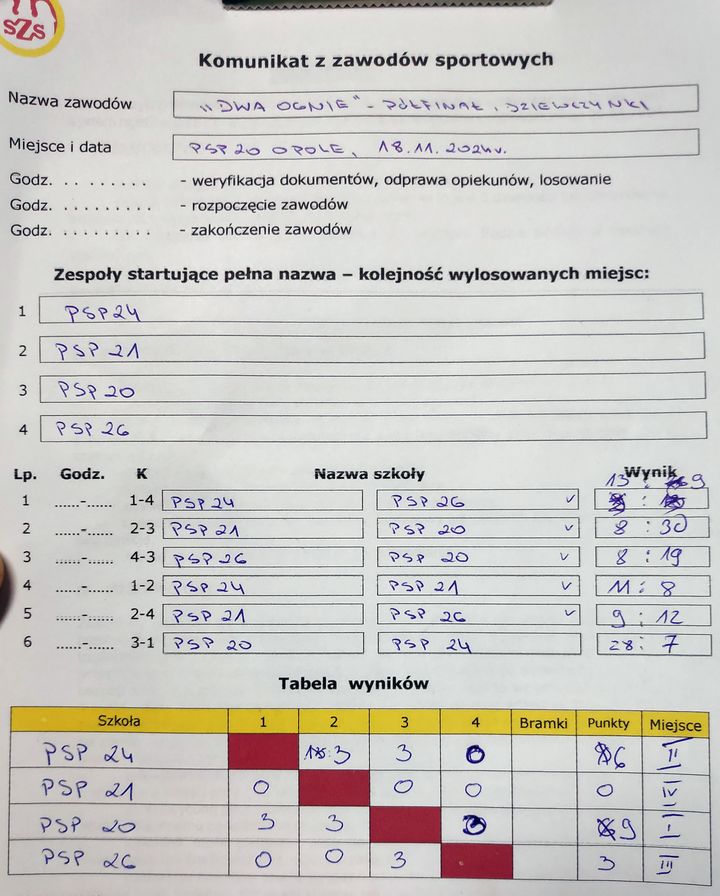 sZs
Komunikat z zawodów sportowych
Nazwa zawodów „DWA OGNIE" - PÓŁFINAŁ, DZIEWCZYNKI
Miejsce i data PSP 20 OPOLE, 18.11.2024r.
Godz. . . . . . . . . . - weryfikacja dokumentów, odprawa opiekunów, losowanie
Godz. . . . . . . . . . - rozpoczęcie zawodów
Godz. . . . . . . . . . - zakończenie zawodów
Zespoły startujące pełna nazwa – kolejność wylosowanych miejsc:
1 PSP 24
2 PSP 21
3 PSP 20
4 PSP 26
Lp. Godz. K Nazwa szkoły Wynik
1 ......-...... 1-4 PSP 24 PSP 26 ✓ 13 : 9
2 ......-...... 2-3 PSP 21 PSP 20 ✓ 8 : 30
3 ......-...... 4-3 PSP 26 PSP 20 ✓ 8 : 19
4 ......-...... 1-2 PSP 24 PSP 21 ✓ 11 : 8
5 ......-...... 2-4 PSP 21 PSP 26 ✓ 9 : 12
6 ......-...... 3-1 PSP 20 PSP 24 28 : 7
Tabela wyników
Szkoła 1 2 3 4 Bramki Punkty Miejsce
PSP 24 3 3 0 6 II
PSP 21 0 0 0 0 IV
PSP 20 3 3 3 9 I
PSP 26 0 0 3 3 III